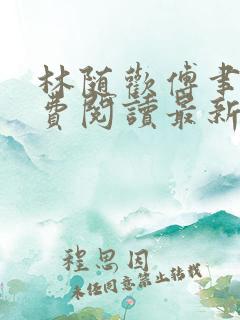 林随歡傅書
費閱讀最新
程思因
未任同意禁止转载